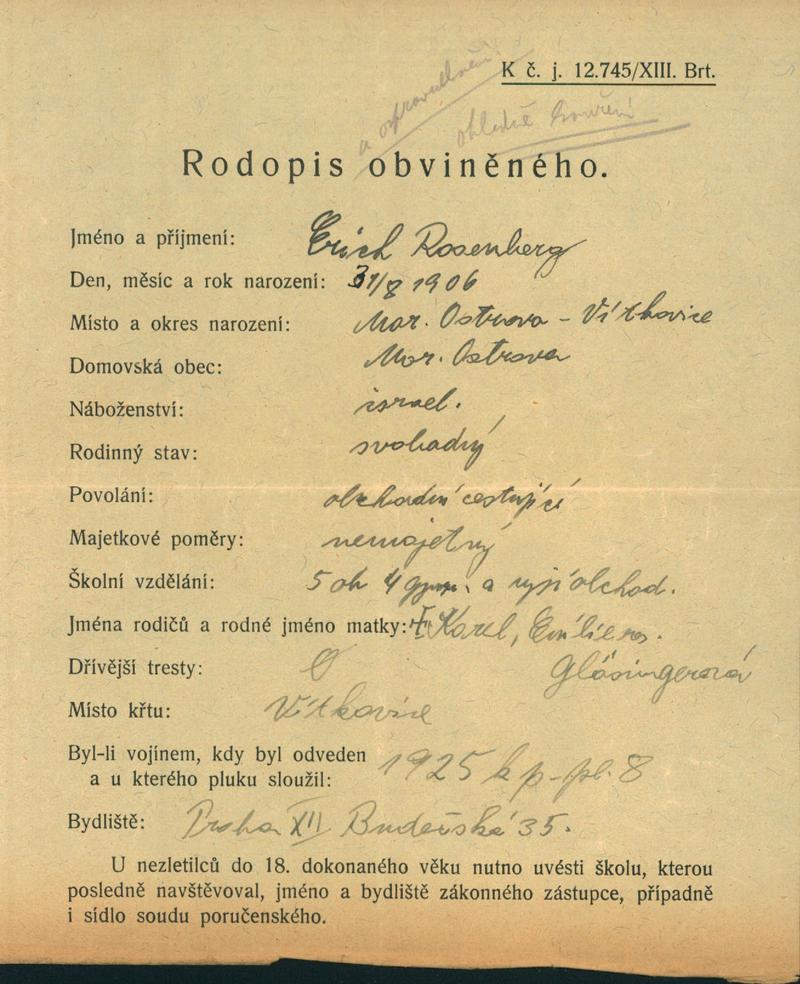 K č. j. 12.745/XIII. Brt.
a ospravedlnění
ohledně kouření
Rodopis obviněného.
Jméno a příjmení: Erich Rosenberg
Den, měsíc a rok narození: 31/8 1906
Místo a okres narození: Mor. Ostrava - Vítkovice
Domovská obec: Mor. Ostrava
Náboženství: israel.
Rodinný stav: svobodný
Povolání: obchodní cestující
Majetkové poměry: nemajetný
Školní vzdělání: 5 ob 4 gymn. a vyší obchod.
Jména rodičů a rodné jméno matky: † Karel, Emílie roz.
Dřívější tresty: 0 Glösingerová
Místo křtu: Vítkovice
Byl-li vojínem, kdy byl odveden
a u kterého pluku sloužil: 1925 h p. pl. 8
Bydliště: Praha XII Budečská 35.
U nezletilců do 18. dokonaného věku nutno uvésti školu, kterou
posledně navštěvoval, jméno a bydliště zákonného zástupce, případně
i sídlo soudu poručenského.